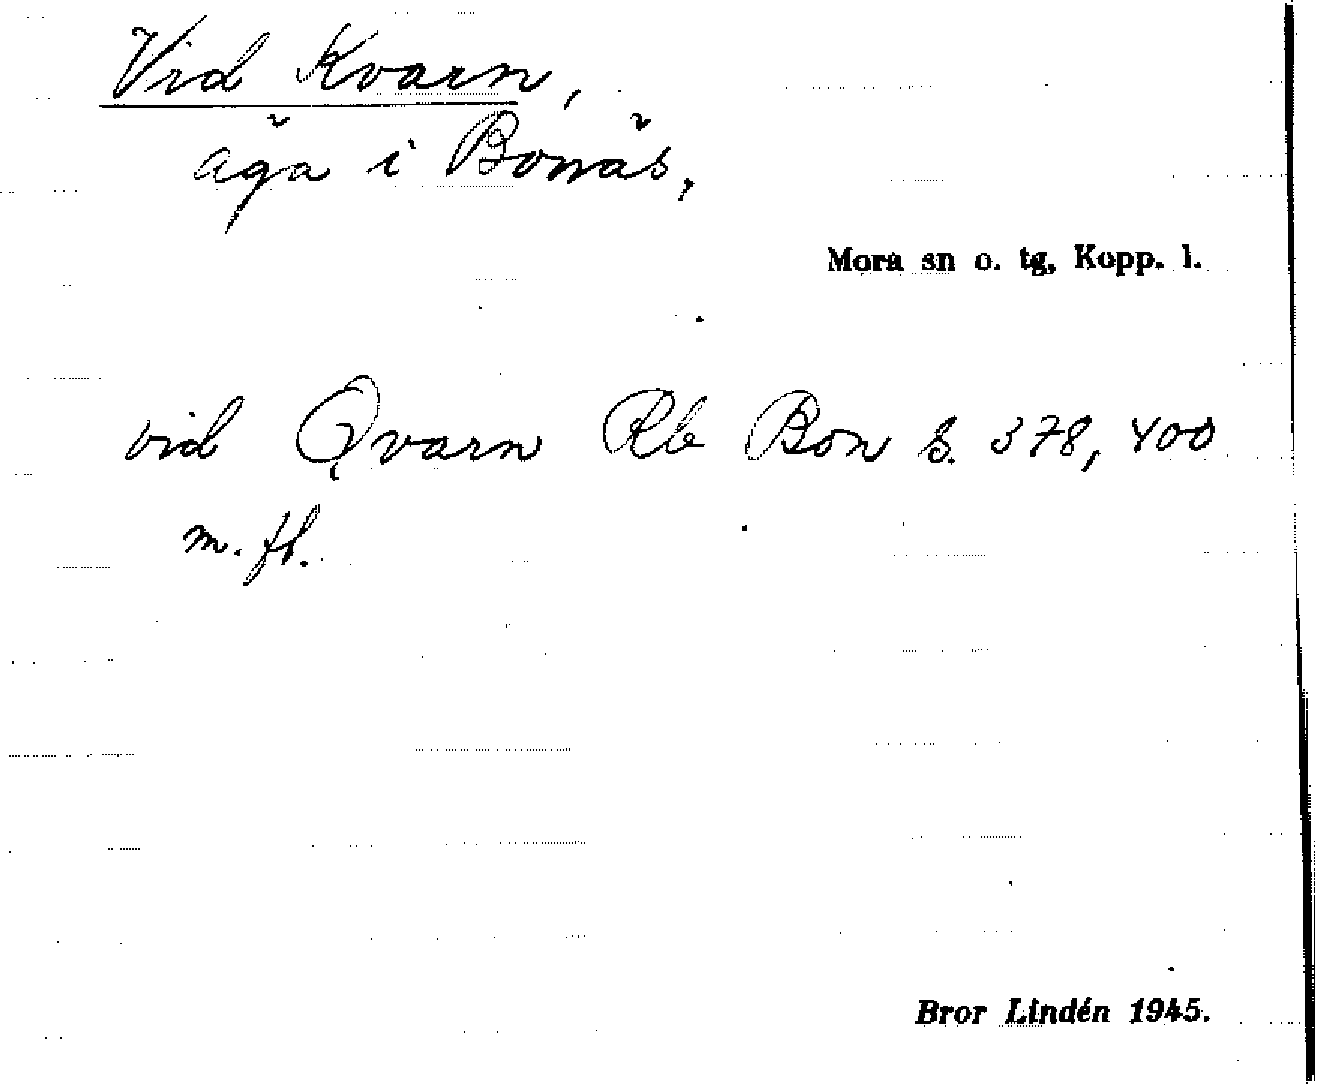 Vid Kvarn,
äga i Bonäs,
Mora sn o. tg, Kopp. l.
vid Qvarn Rb Bon s. 378, 400
m. fl.
Bror Lindén 1945.